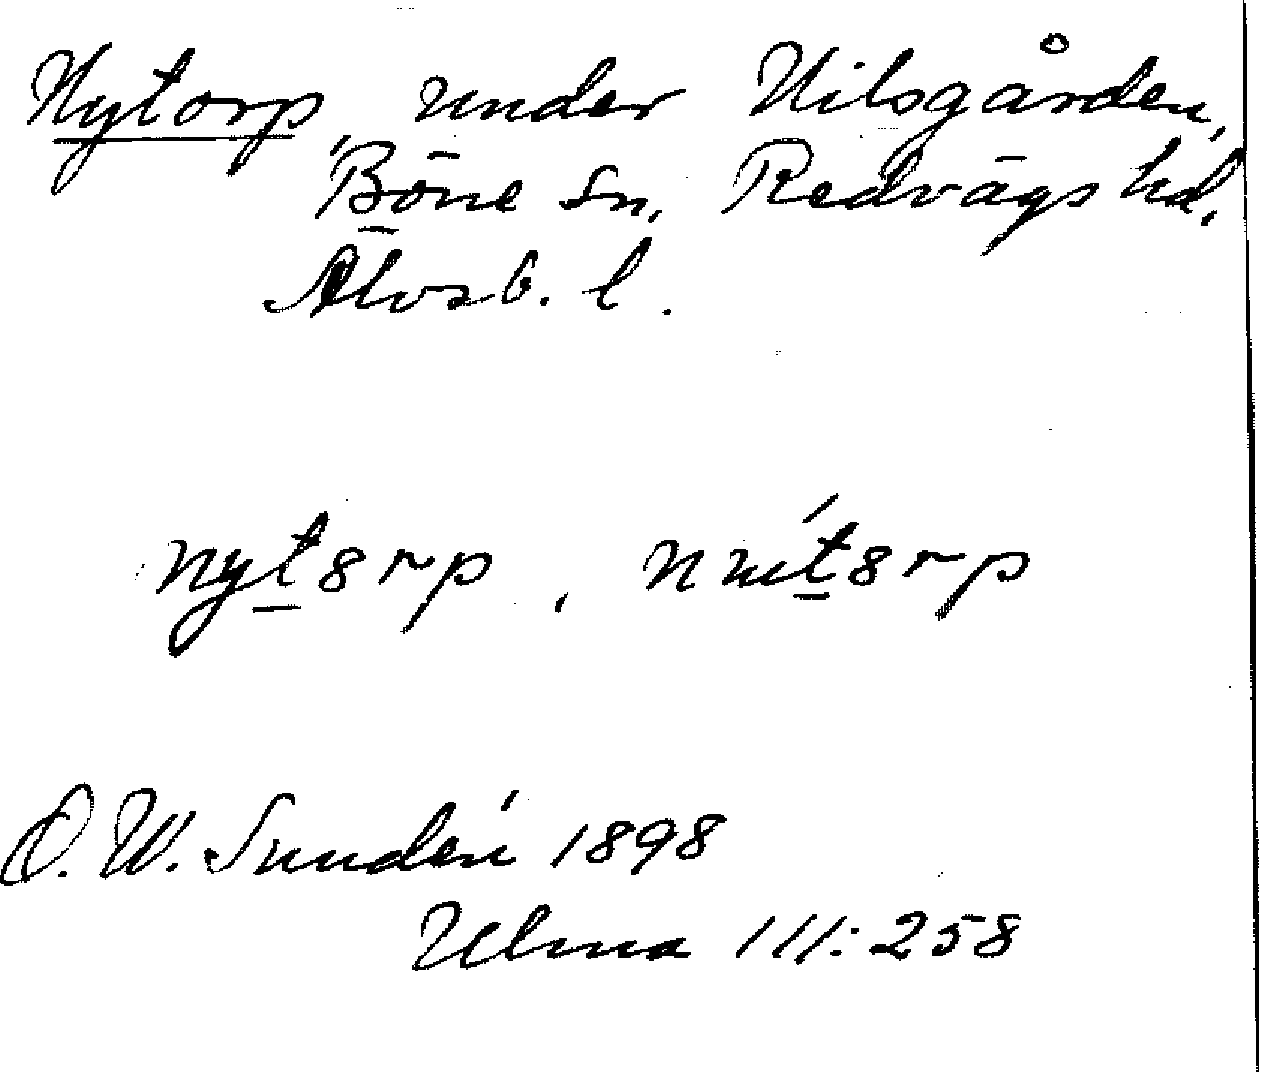 Nytorp, under Nilsgården,
Böne sn, Redvägs hd,
Älvsb. l.
nyt8rp,
O. W. Sundén 1898
Ulma 111:258